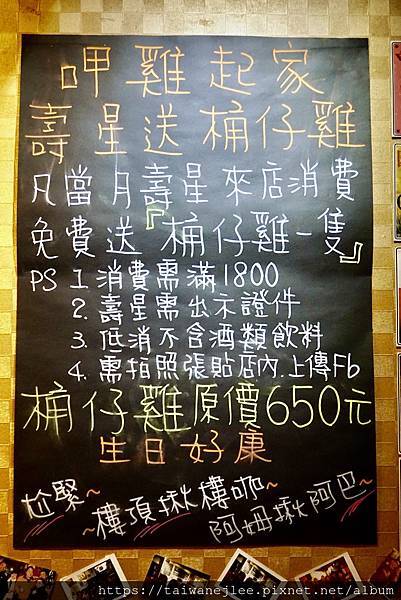 呷雞起家
壽星送桶仔雞
凡當月壽星來店消費
免費送『桶仔雞一隻』
PS 1. 消費需滿1800
2. 壽星需出示證件
3. 低消不含酒類飲料
4. 需拍照張貼店內.上傳Fb
桶仔雞原價650元
生日好康
尬緊~
~樓頂揪樓咖~
阿姆揪阿巴~
https://taiwanejlee.pixnet.net/album